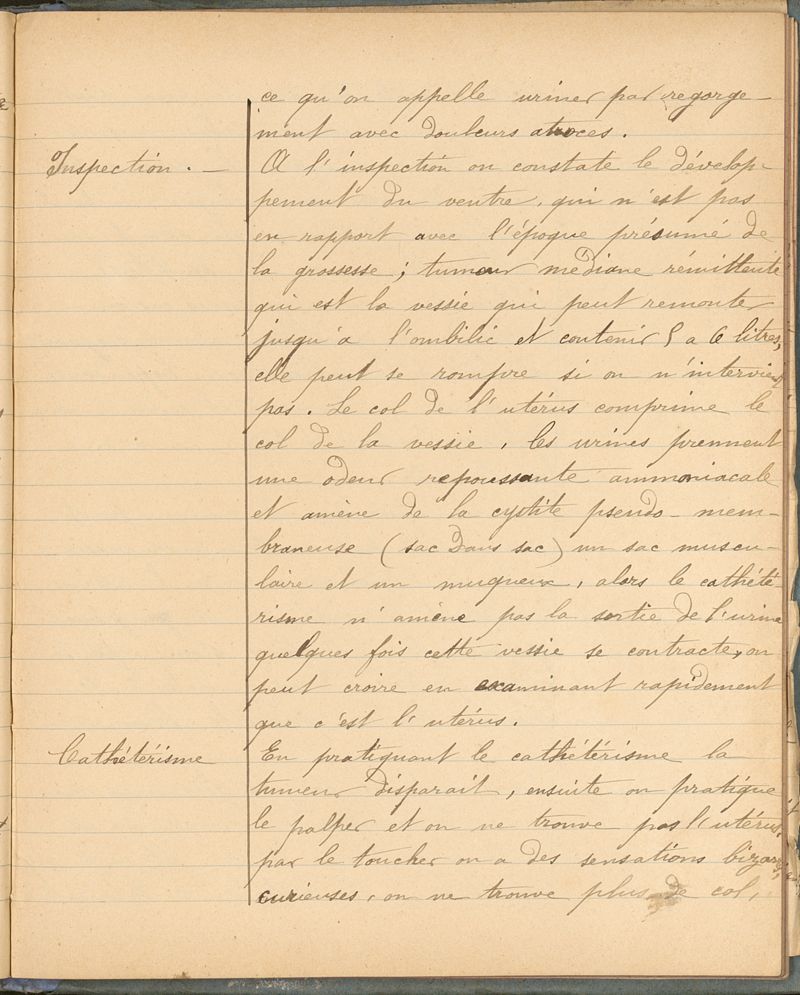 ce qu'on appelle uriner par regorge-
ment avec douleurs atroces.
Inspection. — A l'inspection on constate le dévelop-
pement du ventre, qui n'est pas
en rapport avec l'époque présumé de
la grossesse ; tumeur médiane rémittente
qui est la vessie qui peut remonter
jusqu'a l'ombilic et contenir 5 a 6 litres,
elle peut se rompre si on n'intervient
pas. Le col de l'utérus comprime le
col de la vessie, les urines prennent
une odeur repoussante ammoniacale
et amène de la cystite pseudo-mem-
braneuse (sac dans sac) un sac muscu-
laire et un muqueux, alors le cathété-
risme n'amène pas la sortie de l'urine
quelques fois cette vessie se contracte, on
peut croire en examinant rapidement
que c'est l'utérus.
Cathétérisme En pratiquant le cathétérisme la
tumeur disparait, ensuite on pratique
le palper et on ne trouve pas l'utérus,
par le toucher on a des sensations bizares,
curieuses, on ne trouve plus de col,